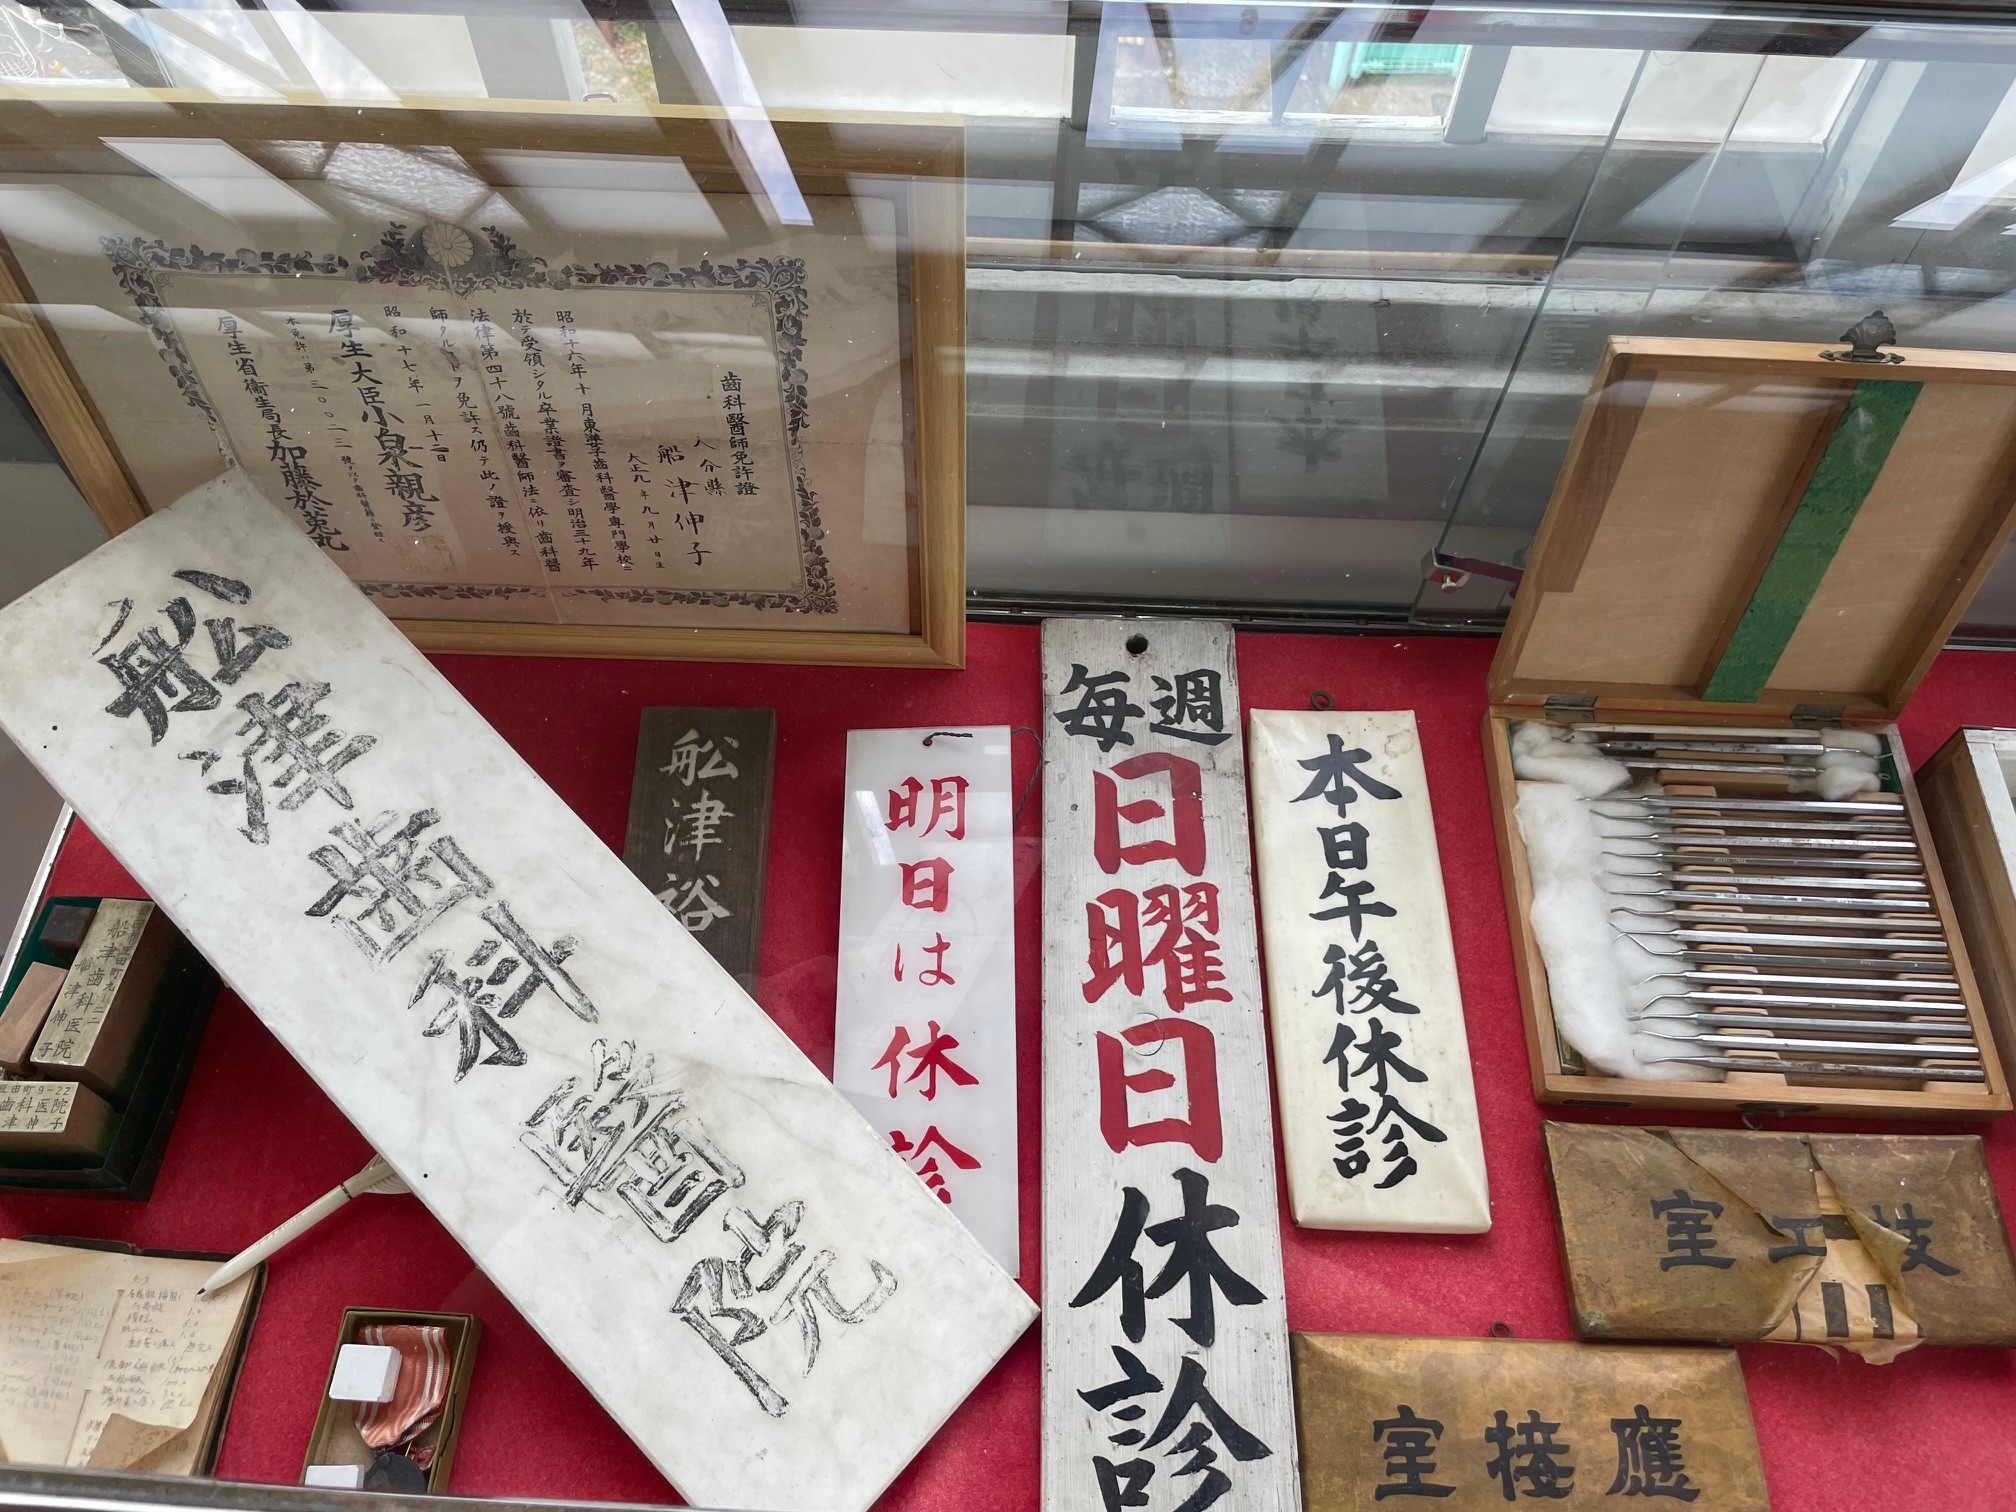 齒科醫師免許證
大分縣
船津伸子
大正九年九月廿日生
昭和十六年十月東洋女子齒科醫學專門學校ニ
於テ受領シタル卒業證書ヲ審査シ明治三十九年
法律第四十八號齒科醫師法ニ依リ齒科醫
師タルコトヲ免許ス仍テ此ノ證ヲ授與ス
昭和十七年一月十二日
厚生大臣小泉親彦
厚生省衞生局長加藤於菟丸
船津歯科醫院
船津裕
明日は休診
毎週
日曜日
休診
本日午後休診
室工技
室接應
船津歯科医院
船津伸子
豆田町9-22
歯科医院
津伸子